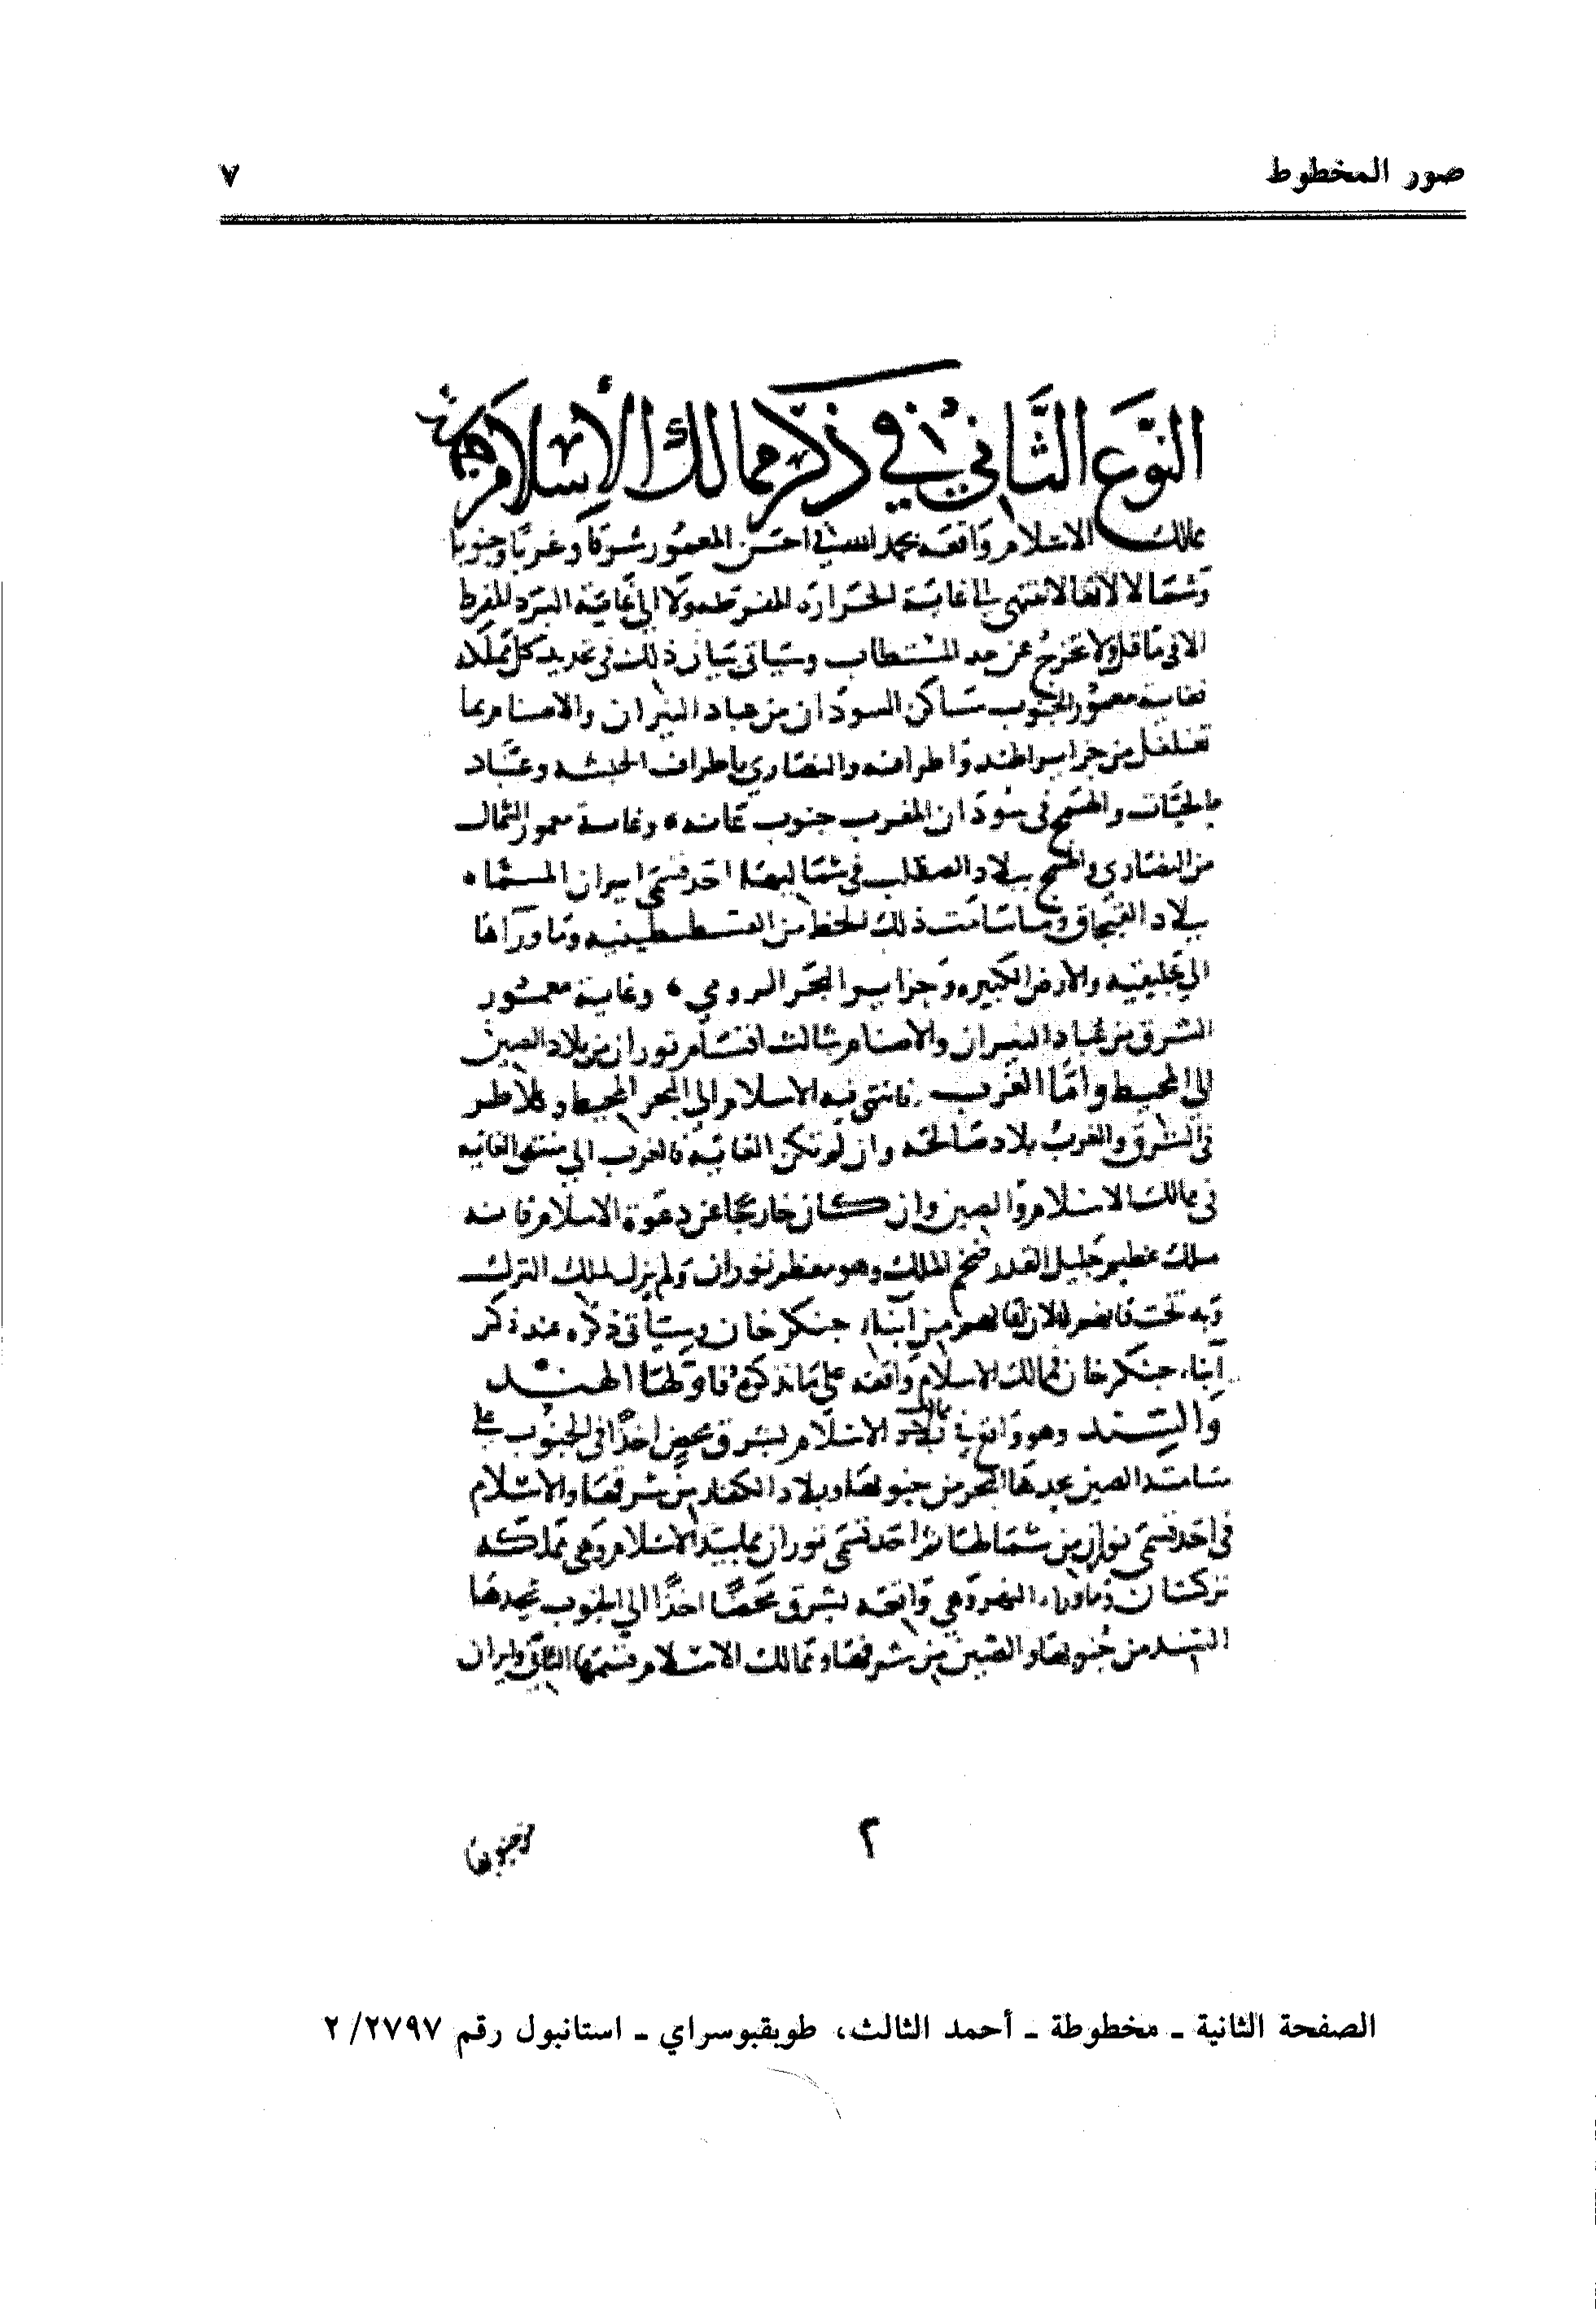 صور المخطوط ٧
النَّوع الثَّاني في ذكر ممالك الإسلام
ممالك الاسلام واقعه بحمد الله في احسن المعمور شرقًا وغربًا وجنوبا
وشمالا لانها لا تنتهي الى غاية الحراره المفرطه ولا الى غاية البرد المفرط
الا في ما قل ولا تخرج عن حد المستطاب وسياتي بيان ذلك في تحديد كل مملكه
فغاية معمور الجنوب مساكن السودان من عباد النيران والاصنام بما
تغلغل من جزاير الهند واطرافه والنصاري باطراف الحبشه وعبّاد
الحيّات والهمج في سودان المغرب جنوب غانه، وغاية معمور الشمال
من النصاري والهمج ببلاد الصقلب في شماليها احد قسمي ايران المسمّا،
ببلاد القبجاق وما سامت ذلك الخط من القسطنطينيه وما ورآها
الي جليقيه والارض الكبيره وجزاير البحر الرومي، وغاية معمور
الشرق من عباد النيران والاصنام ثالث اقسام توران من بلاد الصين
الى المحيط وامّا الغرب فانتهى فيه الاسلام الى البحر المحيط وكلا طر
في الشرق والغرب بلاد صالحه وان لم تكن الغايه فالغرب الي منتهى الغايه
في ممالك الاسلام والصين وان كان خارجًا عن دعوة الاسلام فانه
ملك عظيم جليل القدر ضخم الملك وهو معظم توران ولم يزل لملك الترك
وبه تخت قانهم وللان القان لهم من ابناء جنكز خان وسيأتي ذكره عند ذكر
ابناء جنكز خان فممالك الاسلام واقعه على ما نذكره، فاولها الهند
والسّند وهو واقع في ممالك بلاد الاسلام بشرق محض اخذًا في الجنوب على
سامتة الصين يحدها البحر من جنوبها وبلاد الكفار من شرقها والاسلام
في احد قسمي توران من شمالها ثم احد قسمي توران مما بيد الاسلام وهي مملكه
تركستان وما وراء النهر وهي واقعه بشرق محضًا اخذًا الي الجنوب يحدها
السند من جنوبها والصين من شرقها وممالك الاسلام قسمها الثاني وايران
٢
وجنوبها
الصفحة الثانية - مخطوطة - أحمد الثالث، طوبقبوسراي - استانبول رقم ٢/٢٧٩٧